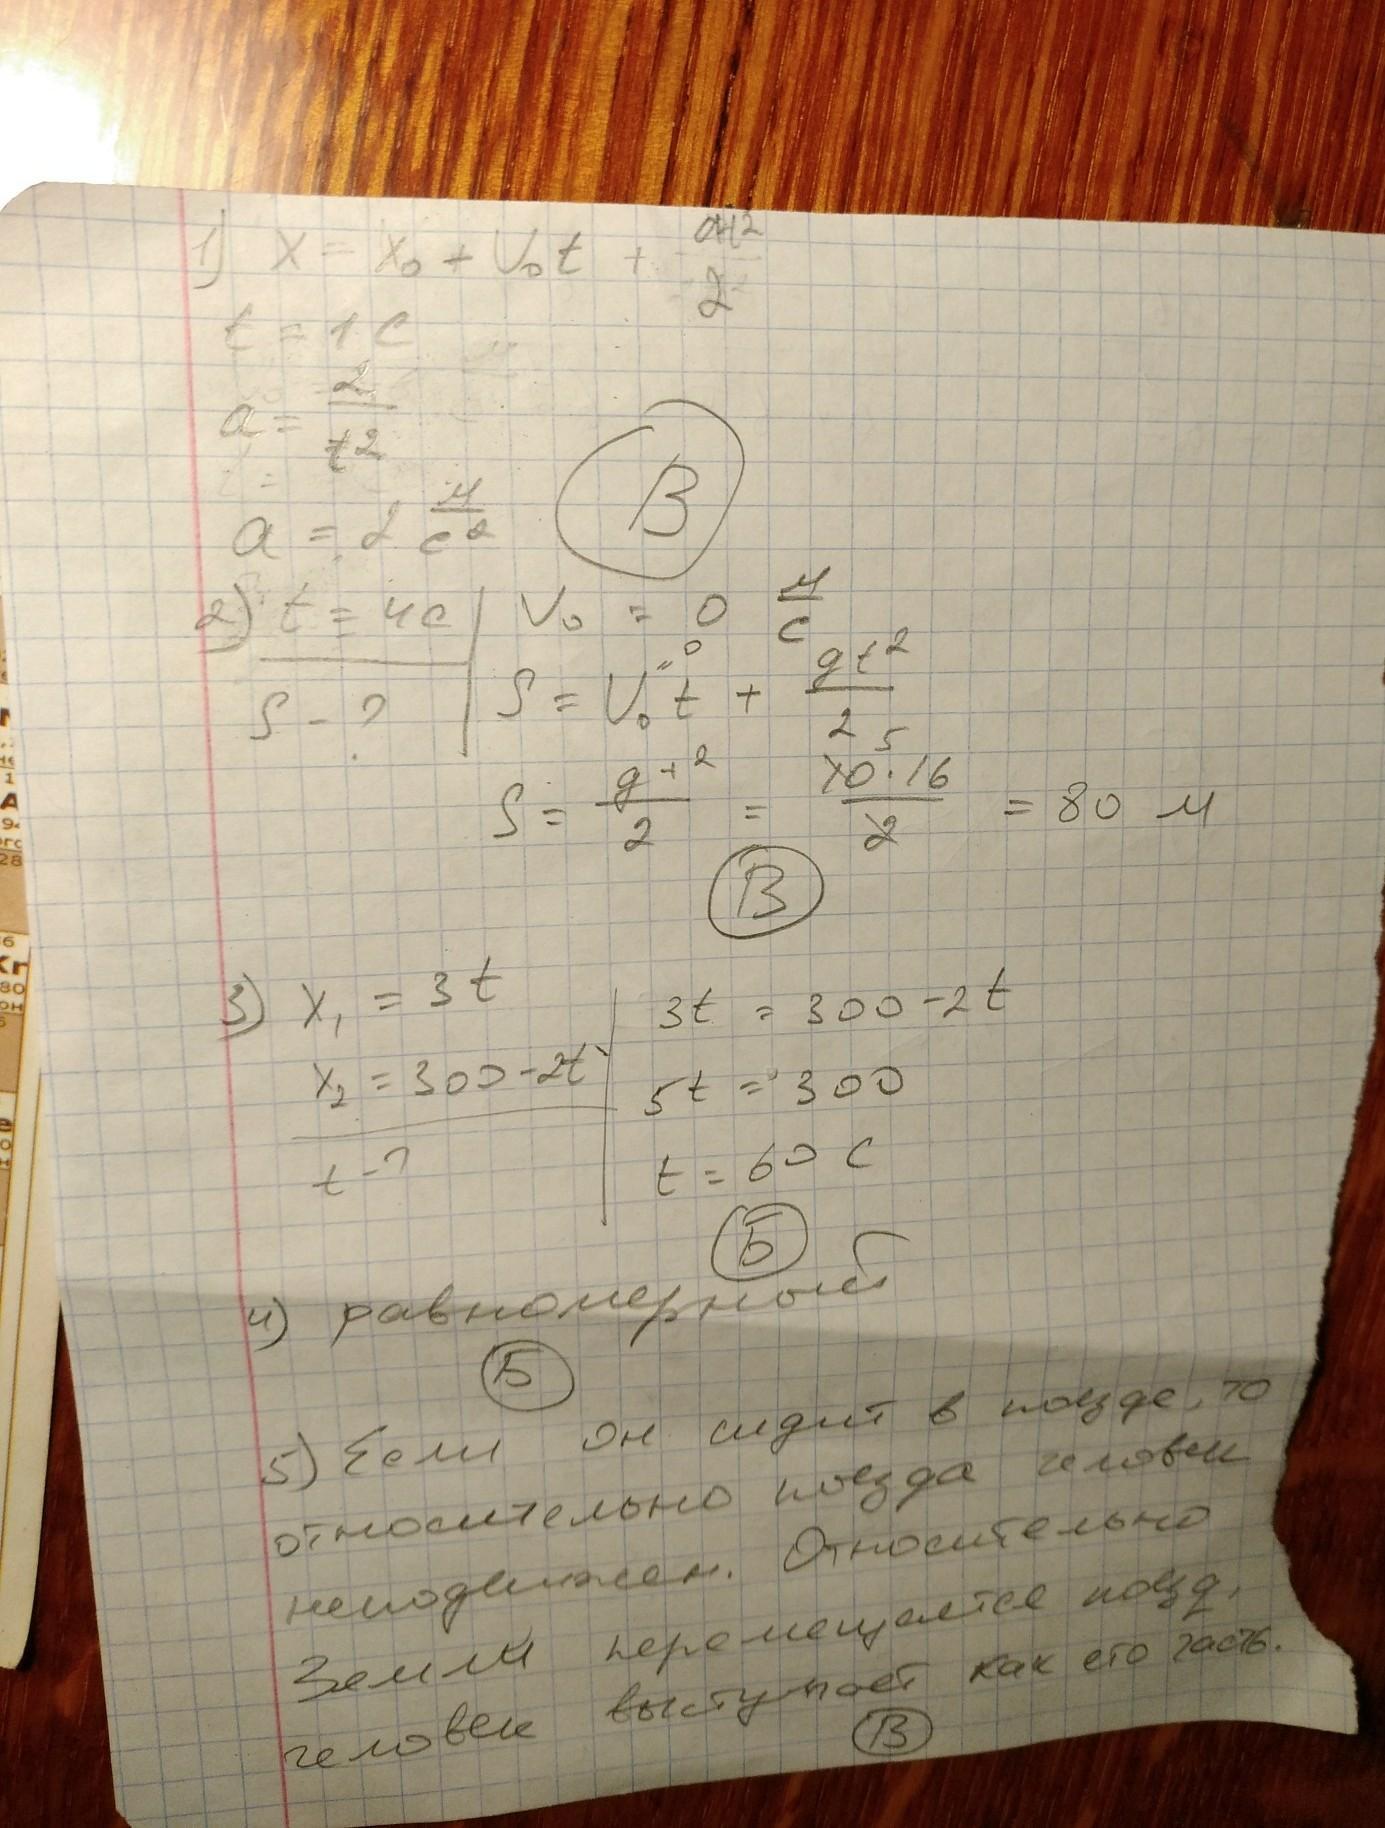 1) x = x₀ + V₀t + at²/2
t = 1 с
a = 2/t²
a = 2 м/с²
В
2) t = 4с | V₀ = 0 м/с
S - ? | S = V₀t + gt²/2
0
S = gt²/2 = 10·16/2 = 80 м
5
В
3) x₁ = 3t | 3t = 300-2t
x₂ = 300-2t | 5t = 300
t - ? | t = 60 с
Б
4) равномерный
Б
5) Если он сидит в поезде, то
относительно поезда человек
неподвижен. Относительно
Земли перемещается поезд,
человек выступает как его часть.
В